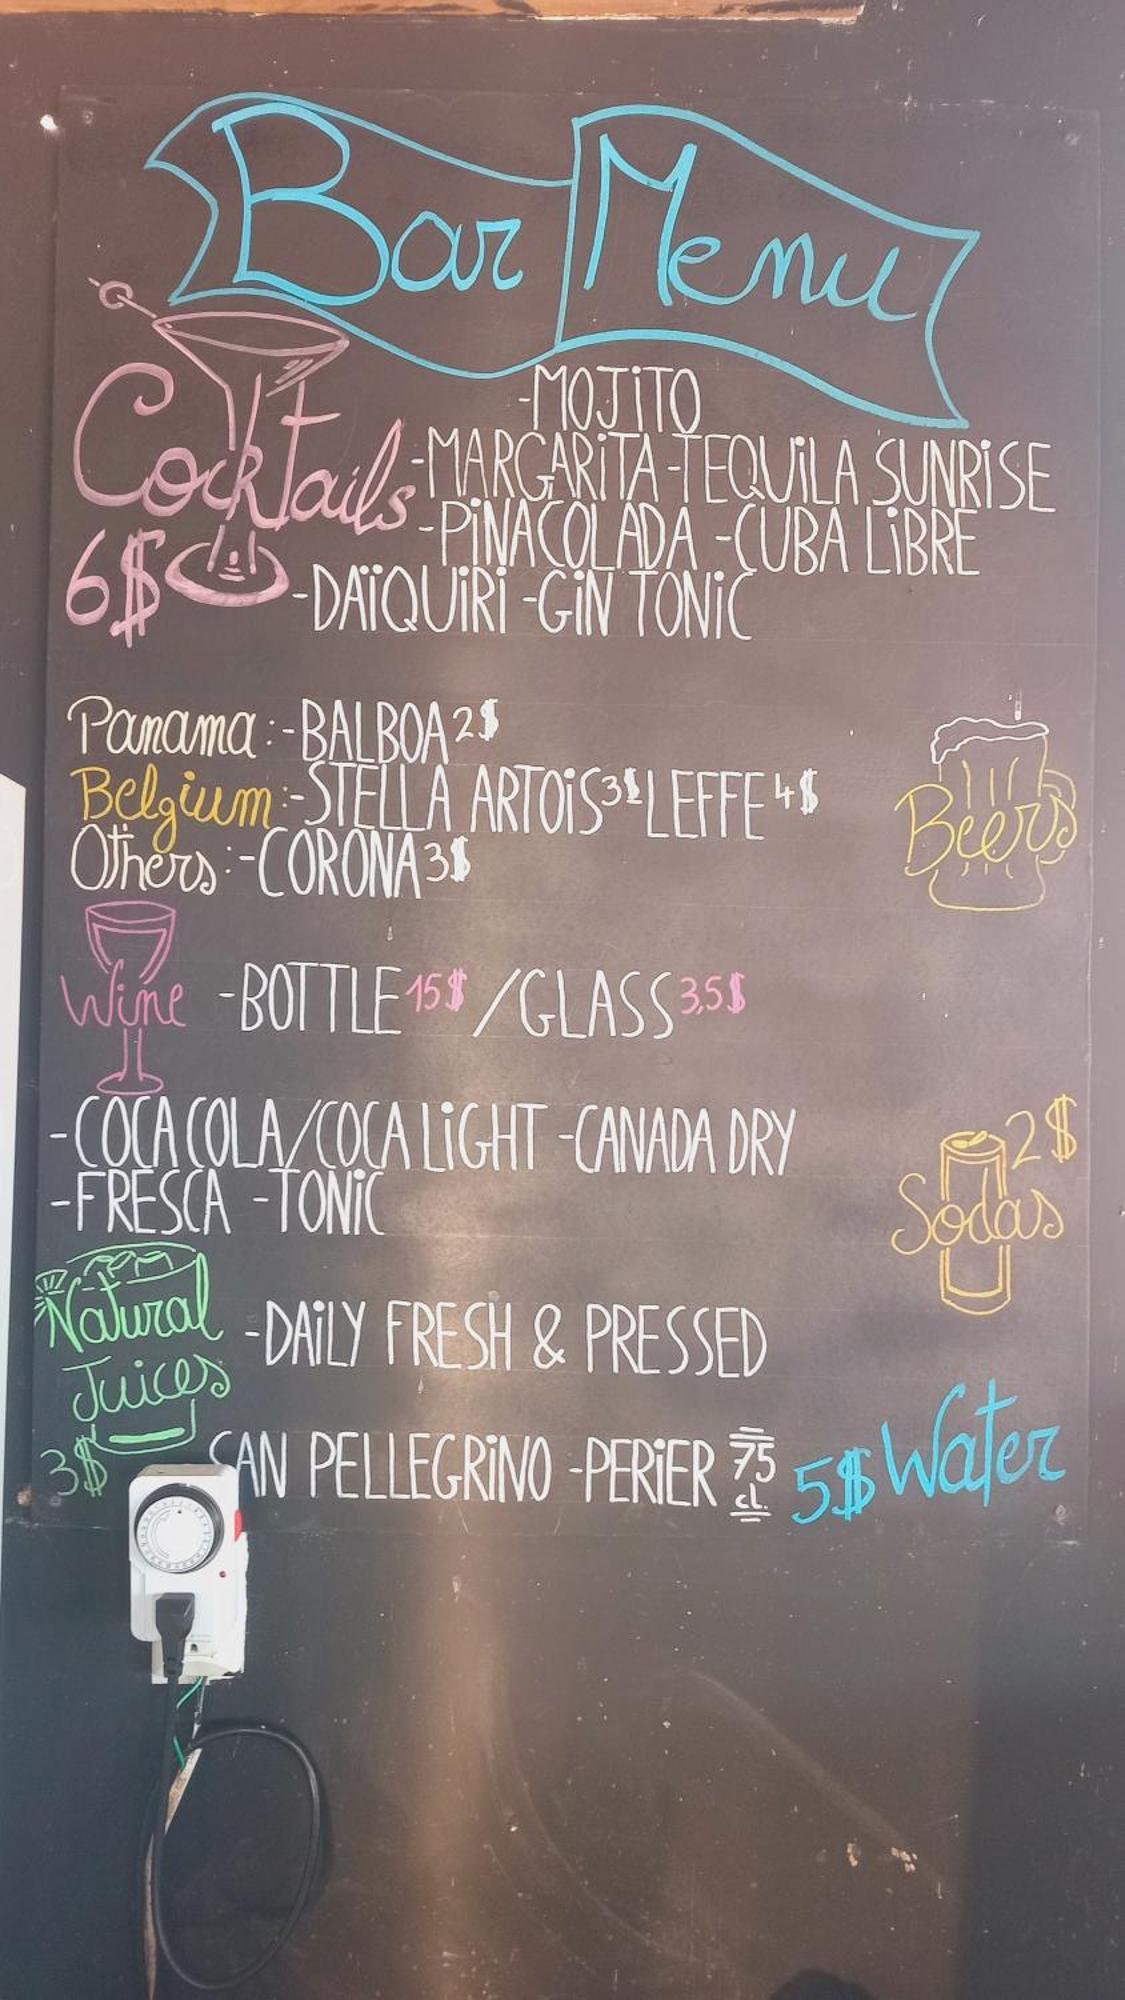 Bar Menu
Cocktails
6$
-MOJiTO
-MARGARiTA -TEQUiLA SUNRiSE
-PiNACOLADA -CUBA LiBRE
-DAïQUiRi -GiN TONiC
Panama: -BALBOA 2$
Belgium: -STELLA ARTOiS 3$ LEFFE 4$
Others: -CORONA 3$
Beers
Wine -BOTTLE 15$ / GLASS 3,5$
-COCA COLA/COCA LiGHT -CANADA DRY
-FRESCA -TONiC
2$
Sodas
Natural
Juices
3$
-DAiLY FRESH & PRESSED
SAN PELLEGRiNO -PERiER 75 cl. 5$ Water